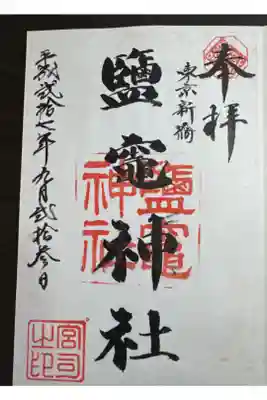 奉拝
東京新橋
鹽竈神社
鹽竈神社
平成弐拾七年九月弐拾参日
宮司之印